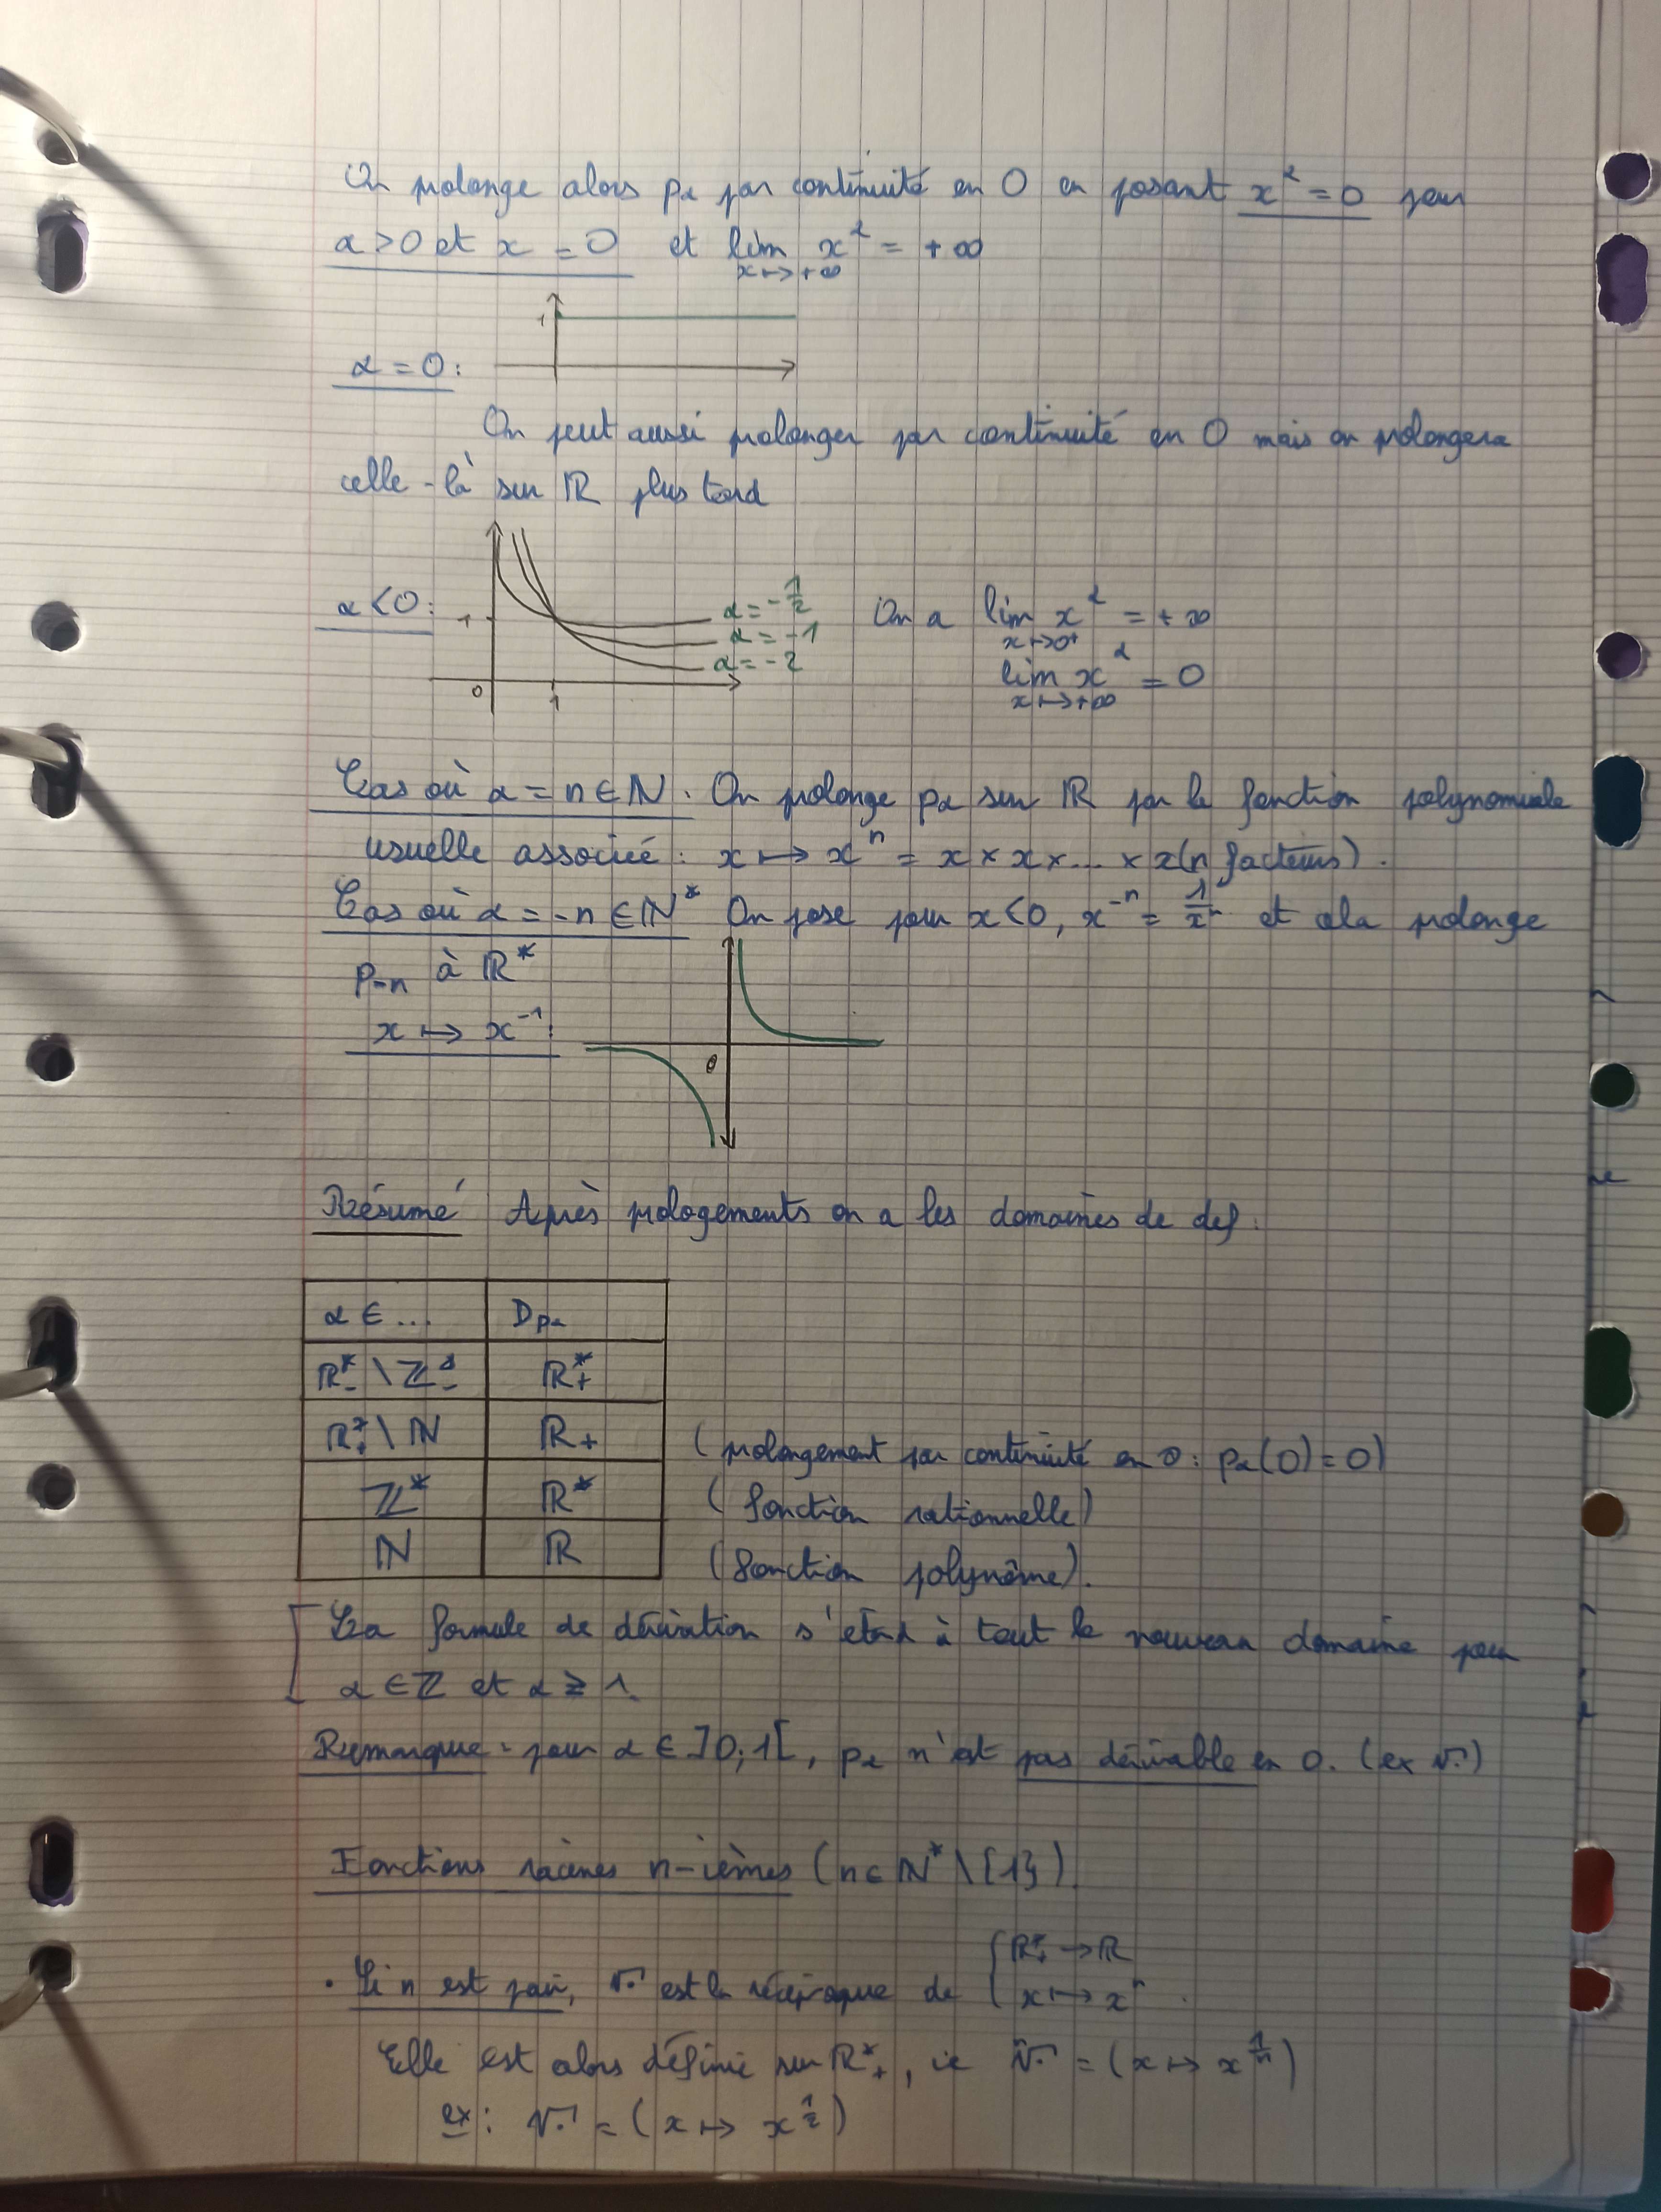 On prolonge alors pα par continuité en 0 en posant x^α = 0 pour
α > 0 et x = 0 et lim x^α = +∞
x↦+∞
1
α = 0 :
On peut aussi prolonger par continuité en 0 mais on prolongera
celle-là sur ℝ plus tard
α < 0 :
1
0
1
α = -1/2
α = -1
α = -2
On a lim x^α = +∞
x↦0⁺
lim x^α = 0
x↦+∞
Cas où α = n ∈ ℕ. On prolonge pα sur ℝ par la fonction polynomiale
usuelle associée : x ↦ x^n = x × x × ... × x (n facteurs).
Cas où α = -n ∈ ℕ* On pose pour x < 0, x^-n = 1/x^n et cela prolonge
p-n à ℝ*
x ↦ x^-1 :
0
Résumé Après prologements on a les domaines de def :
α ∈ ... Dpα
ℝ*₋ \ ℤ*₋ ℝ*₊
ℝ*₊ \ ℕ ℝ₊ (prolongement par continuité en 0 : pα(0) = 0)
ℤ* ℝ* (fonction rationnelle)
ℕ ℝ (fonction polynôme).
La formule de dérivation s'étend à tout le nouveau domaine pour
α ∈ ℤ et α ≥ 1.
Remarque : pour α ∈ ]0;1[, pα n'est pas dérivable en 0. (ex √.)
Fonctions racines n-ièmes (n ∈ ℕ* \ {1})
• Si n est pair, √. est la réciproque de { ℝ*₊ → ℝ
x ↦ x^n .
Elle est alors définie sur ℝ*₊, ie ⁿ√. = (x ↦ x^1/n)
ex : √. = (x ↦ x^1/2)